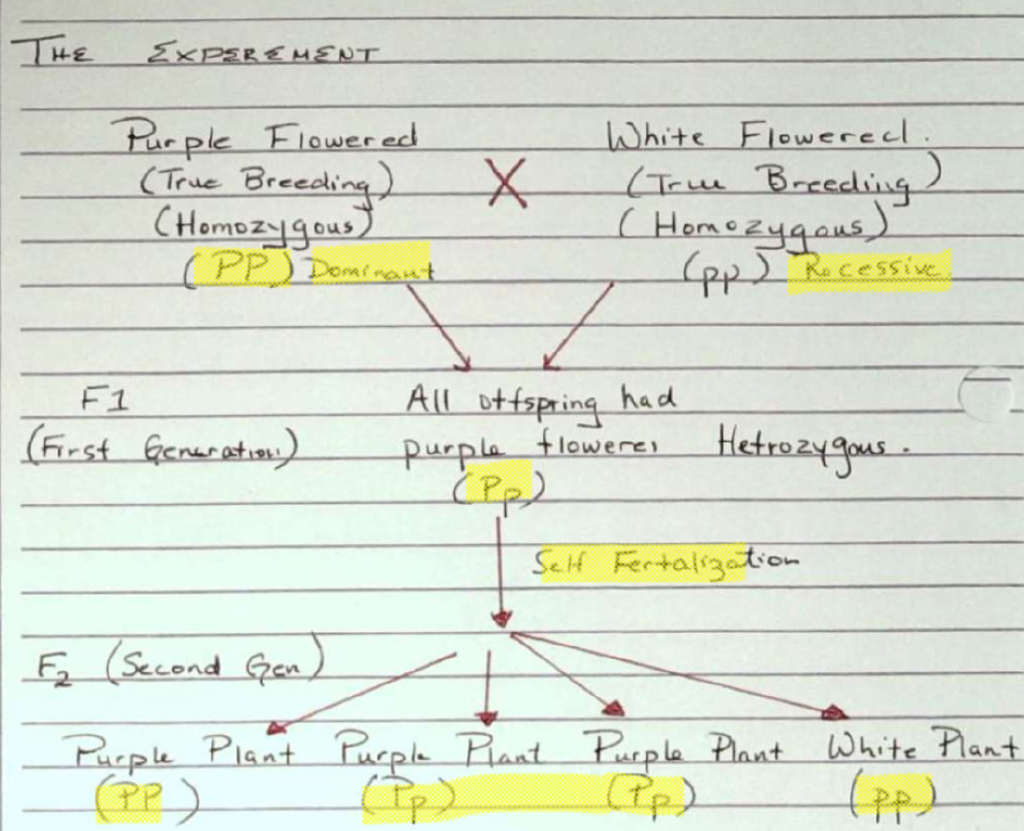 THE EXPEREMENT
Purple Flowered
(True Breeding)
(Homozygous)
(PP) Dominant
X
White Flowered.
(True Breeding)
(Homozygous)
(pp) Recessive
F1
(First Generation)
All offspring had
purple floweres Hetrozygous.
(Pp)
Self Fertalization
F2 (Second Gen)
Purple Plant Purple Plant Purple Plant White Plant
(PP) (Pp) (Pp) (pp)